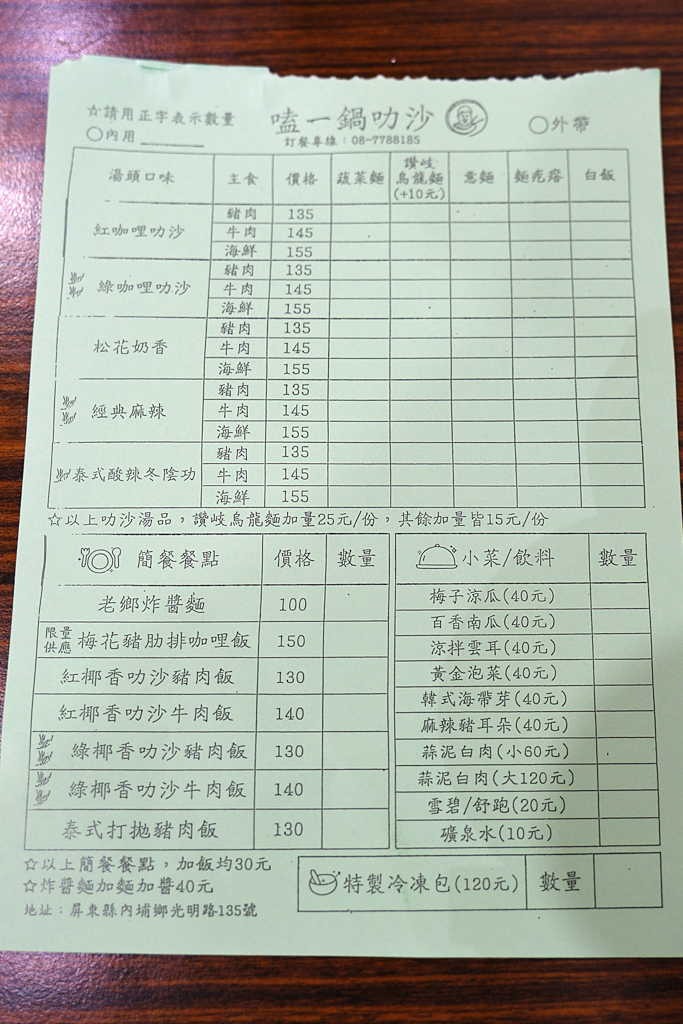 ☆請用正字表示數量
嗑一鍋叻沙
○外帶
○內用
訂餐專線：08-7788185
湯頭口味 主食 價格 蔬菜麵 讚岐烏龍麵(+10元) 意麵 麵疙瘩 白飯
紅咖哩叻沙 豬肉 135
牛肉 145
海鮮 155
綠咖哩叻沙 豬肉 135
牛肉 145
海鮮 155
松花奶香 豬肉 135
牛肉 145
海鮮 155
經典麻辣 豬肉 135
牛肉 145
海鮮 155
泰式酸辣冬陰功 豬肉 135
牛肉 145
海鮮 155
☆以上叻沙湯品，讚岐烏龍麵加量25元/份，其餘加量皆15元/份
簡餐餐點 價格 數量
老鄉炸醬麵 100
限量供應 梅花豬肋排咖哩飯 150
紅椰香叻沙豬肉飯 130
紅椰香叻沙牛肉飯 140
綠椰香叻沙豬肉飯 130
綠椰香叻沙牛肉飯 140
泰式打拋豬肉飯 130
小菜/飲料 數量
梅子涼瓜(40元)
百香南瓜(40元)
涼拌雲耳(40元)
黃金泡菜(40元)
韓式海帶芽(40元)
麻辣豬耳朵(40元)
蒜泥白肉(小60元)
蒜泥白肉(大120元)
雪碧/舒跑(20元)
礦泉水(10元)
☆以上簡餐餐點，加飯均30元
☆炸醬麵加麵加醬40元
地址：屏東縣內埔鄉光明路135號
特製冷凍包(120元) 數量